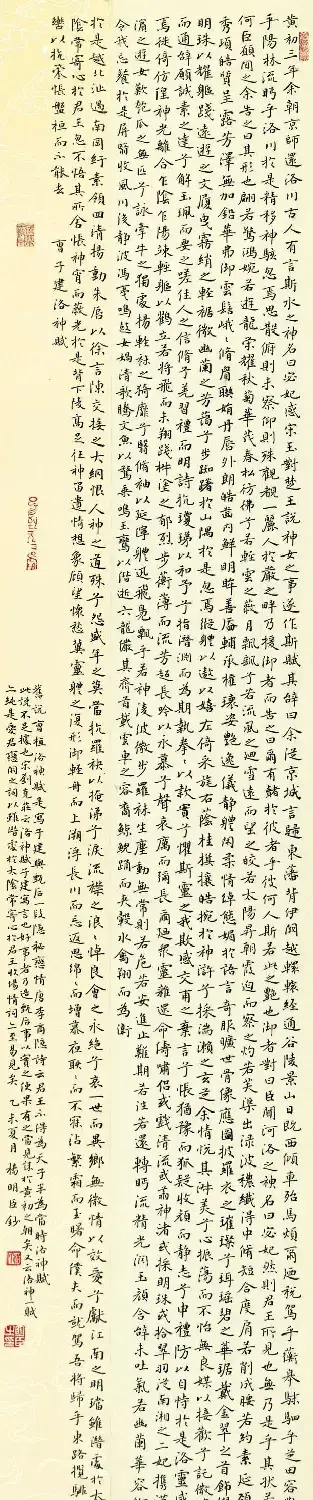 黃初三年余朝京師還洛川古人有言斯水之神名曰宓妃感宋玉對楚王說神女之事遂作斯賦其辭曰余從京域言歸東藩背伊闕越轘轅經通谷陵景山日既西傾車殆馬煩爾迺稅駕乎蘅皋秣駟乎芝田容與
乎陽林流眄乎洛川於是精移神駭忽焉思散俯則未察仰則殊觀覩一麗人於巖之畔乃援御者而告之曰爾有覿於彼者乎彼何人斯若此之艷也御者對曰臣聞河洛之神名曰宓妃然則君王所見也無乃是乎其狀若
何臣願聞之余告之曰其形也翩若驚鴻婉若遊龍榮耀秋菊華茂春松彷彿兮若輕雲之蔽月飄颻兮若流風之迴雪遠而望之皎若太陽昇朝霞迫而察之灼若芙蕖出淥波穠纖得中脩短合度肩若削成腰若約素延頸
秀項皓質呈露芳澤無加鉛華弗御雲髻峨峨脩眉聯娟丹唇外朗皓齒內鮮明眸善睞輔靨承權瓌姿艷逸儀靜體閑柔情綽態媚於語言奇服曠世骨像應圖披羅衣之璀璨兮珥瑤碧之華琚戴金翠之首飾綴
明珠以耀軀踐遠遊之文履曳霧綃之輕裾微幽蘭之芳藹兮步踟躕於山隅於是忽焉縱體以遨以嬉左倚采旄右蔭桂旗攘皓腕於神滸兮採湍瀨之玄芝余情悅其淑美兮心振蕩而不怡無良媒以接歡兮託微波
而通辭願誠素之先達兮解玉珮而要之嗟佳人之信脩兮羌習禮而明詩抗瓊珶以和予兮指潛淵而為期執眷眷之款實兮懼斯靈之我欺感交甫之棄言兮悵猶豫而狐疑收和顏而靜志兮申禮防以自持於是洛靈感
焉徙倚彷徨神光離合乍陰乍陽竦輕軀以鶴立若將飛而未翔踐椒塗之郁烈步蘅薄而流芳超長吟以永慕兮聲哀厲而彌長爾迺眾靈雜遝命儔嘯侶或戲清流或翔神渚或採明珠或拾翠羽從南湘之二妃攜漢
濱之遊女歎匏瓜之無匹兮詠牽牛之獨處揚輕袿之猗靡兮翳脩袖以延佇體迅飛鳧飄忽若神凌波微步羅襪生塵動無常則若危若安進止難期若往若還轉眄流精光潤玉顏含辭未吐氣若幽蘭華容婀娜
令我忘餐於是屏翳收風川后靜波馮夷鳴鼓女媧清歌騰文魚以警乘鳴玉鸞以偕逝六龍儼其齊首載雲車之容裔鯨鯢踴而夾轂水禽翔而為衛
於是越北沚過南岡紆素領迴清揚動朱唇以徐言陳交接之大綱恨人神之道殊兮怨盛年之莫當抗羅袂以掩涕兮淚流襟之浪浪悼良會之永絕兮哀一世而異鄉無微情以效愛兮獻江南之明璫雖潛處於太
陰常寄心於君王忽不悟其所舍悵神宵而蔽光於是背下陵高足往神留遺情想象顧望懷愁冀靈體之復形御輕舟而上溯浮長川而忘返思綿綿而增慕夜耿耿而不寐沾繁霜而至曙命僕夫而就駕吾將歸乎東路攬騑
轡以抗策悵盤桓而不能去 曹子建洛神賦
舊說曹植洛神賦是寫子建與甄后一段隱秘戀情唐李商隱詩云君王不得為天子半為當時洛神賦